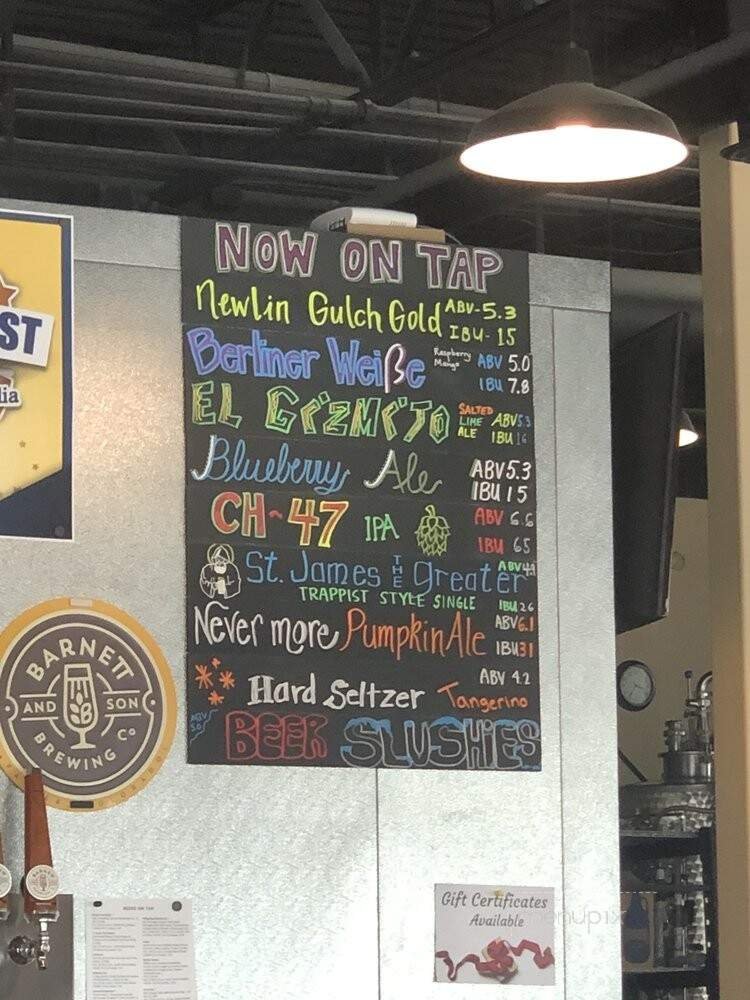 NOW ON TAP
Newlin Gulch Gold ABV-5.3
IBU-15
Berliner Weiße Raspberry Mango ABV 5.0
IBU 7.8
EL GiZMiTO SALTED LIME ALE ABV 5.3
IBU 16
Blueberry Ale ABV 5.3
IBU 15
CH-47 IPA ABV 6.6
IBU 65
St. James THE Greater ABV 4.9
TRAPPIST STYLE SINGLE IBU 26
Never more Pumpkin Ale ABV 6.1
IBU 31
Hard Seltzer Tangerine ABV 4.2
ABV 5.0 BEER SLUSHiES
ST
lia
BARNETT
AND SON
BREWING Co
Gift Certificates
Available